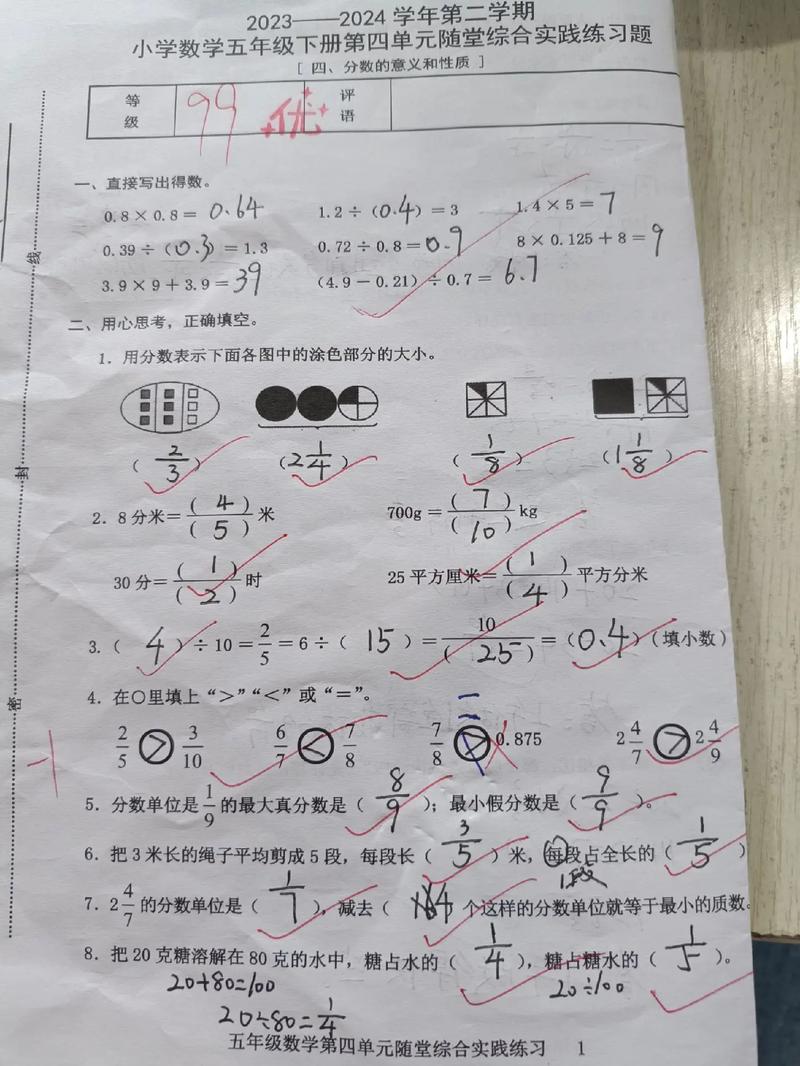 2023——2024 学年第二学期
小学数学五年级下册第四单元随堂综合实践练习题
[ 四、分数的意义和性质 ]
等级 99 优 评语
一、直接写出得数。
0.8×0.8= 0.64 1.2÷(0.4)=3 1.4×5= 7
0.39÷(0.3)=1.3 0.72÷0.8= 0.9 8×0.125+8= 9
3.9×9+3.9= 39 (4.9-0.21)÷0.7= 6.7
二、用心思考，正确填空。
1. 用分数表示下面各图中的涂色部分的大小。
(2/3) (2 1/4) (1/8) (1 1/8)
2. 8分米=(4)/(5)米 700g=(7)/(10)kg
30分=(1)/(2)时 25平方厘米=(1)/(4)平方分米
3. (4)÷10=2/5=6÷(15)=10/(25)=(0.4)(填小数)
4. 在○里填上“>”“<”或“=”。
2/5 > 3/10 6/7 < 7/8 7/8 > 0.875 2 4/7 > 2 4/9
=
-1
5. 分数单位是1/9的最大真分数是(8/9)；最小假分数是(9/9)。
6. 把3米长的绳子平均剪成5段，每段长(3/5)米，每段占全长的(1/5)
1段
7. 2 4/7的分数单位是(1/7)，减去(4)个这样的分数单位就等于最小的质数。
8. 把20克糖溶解在80克的水中，糖占水的(1/4)，糖占糖水的(1/5)。
20+80=100 20÷100
20÷80=1/4
五年级数学第四单元随堂综合实践练习 1
线
封
密